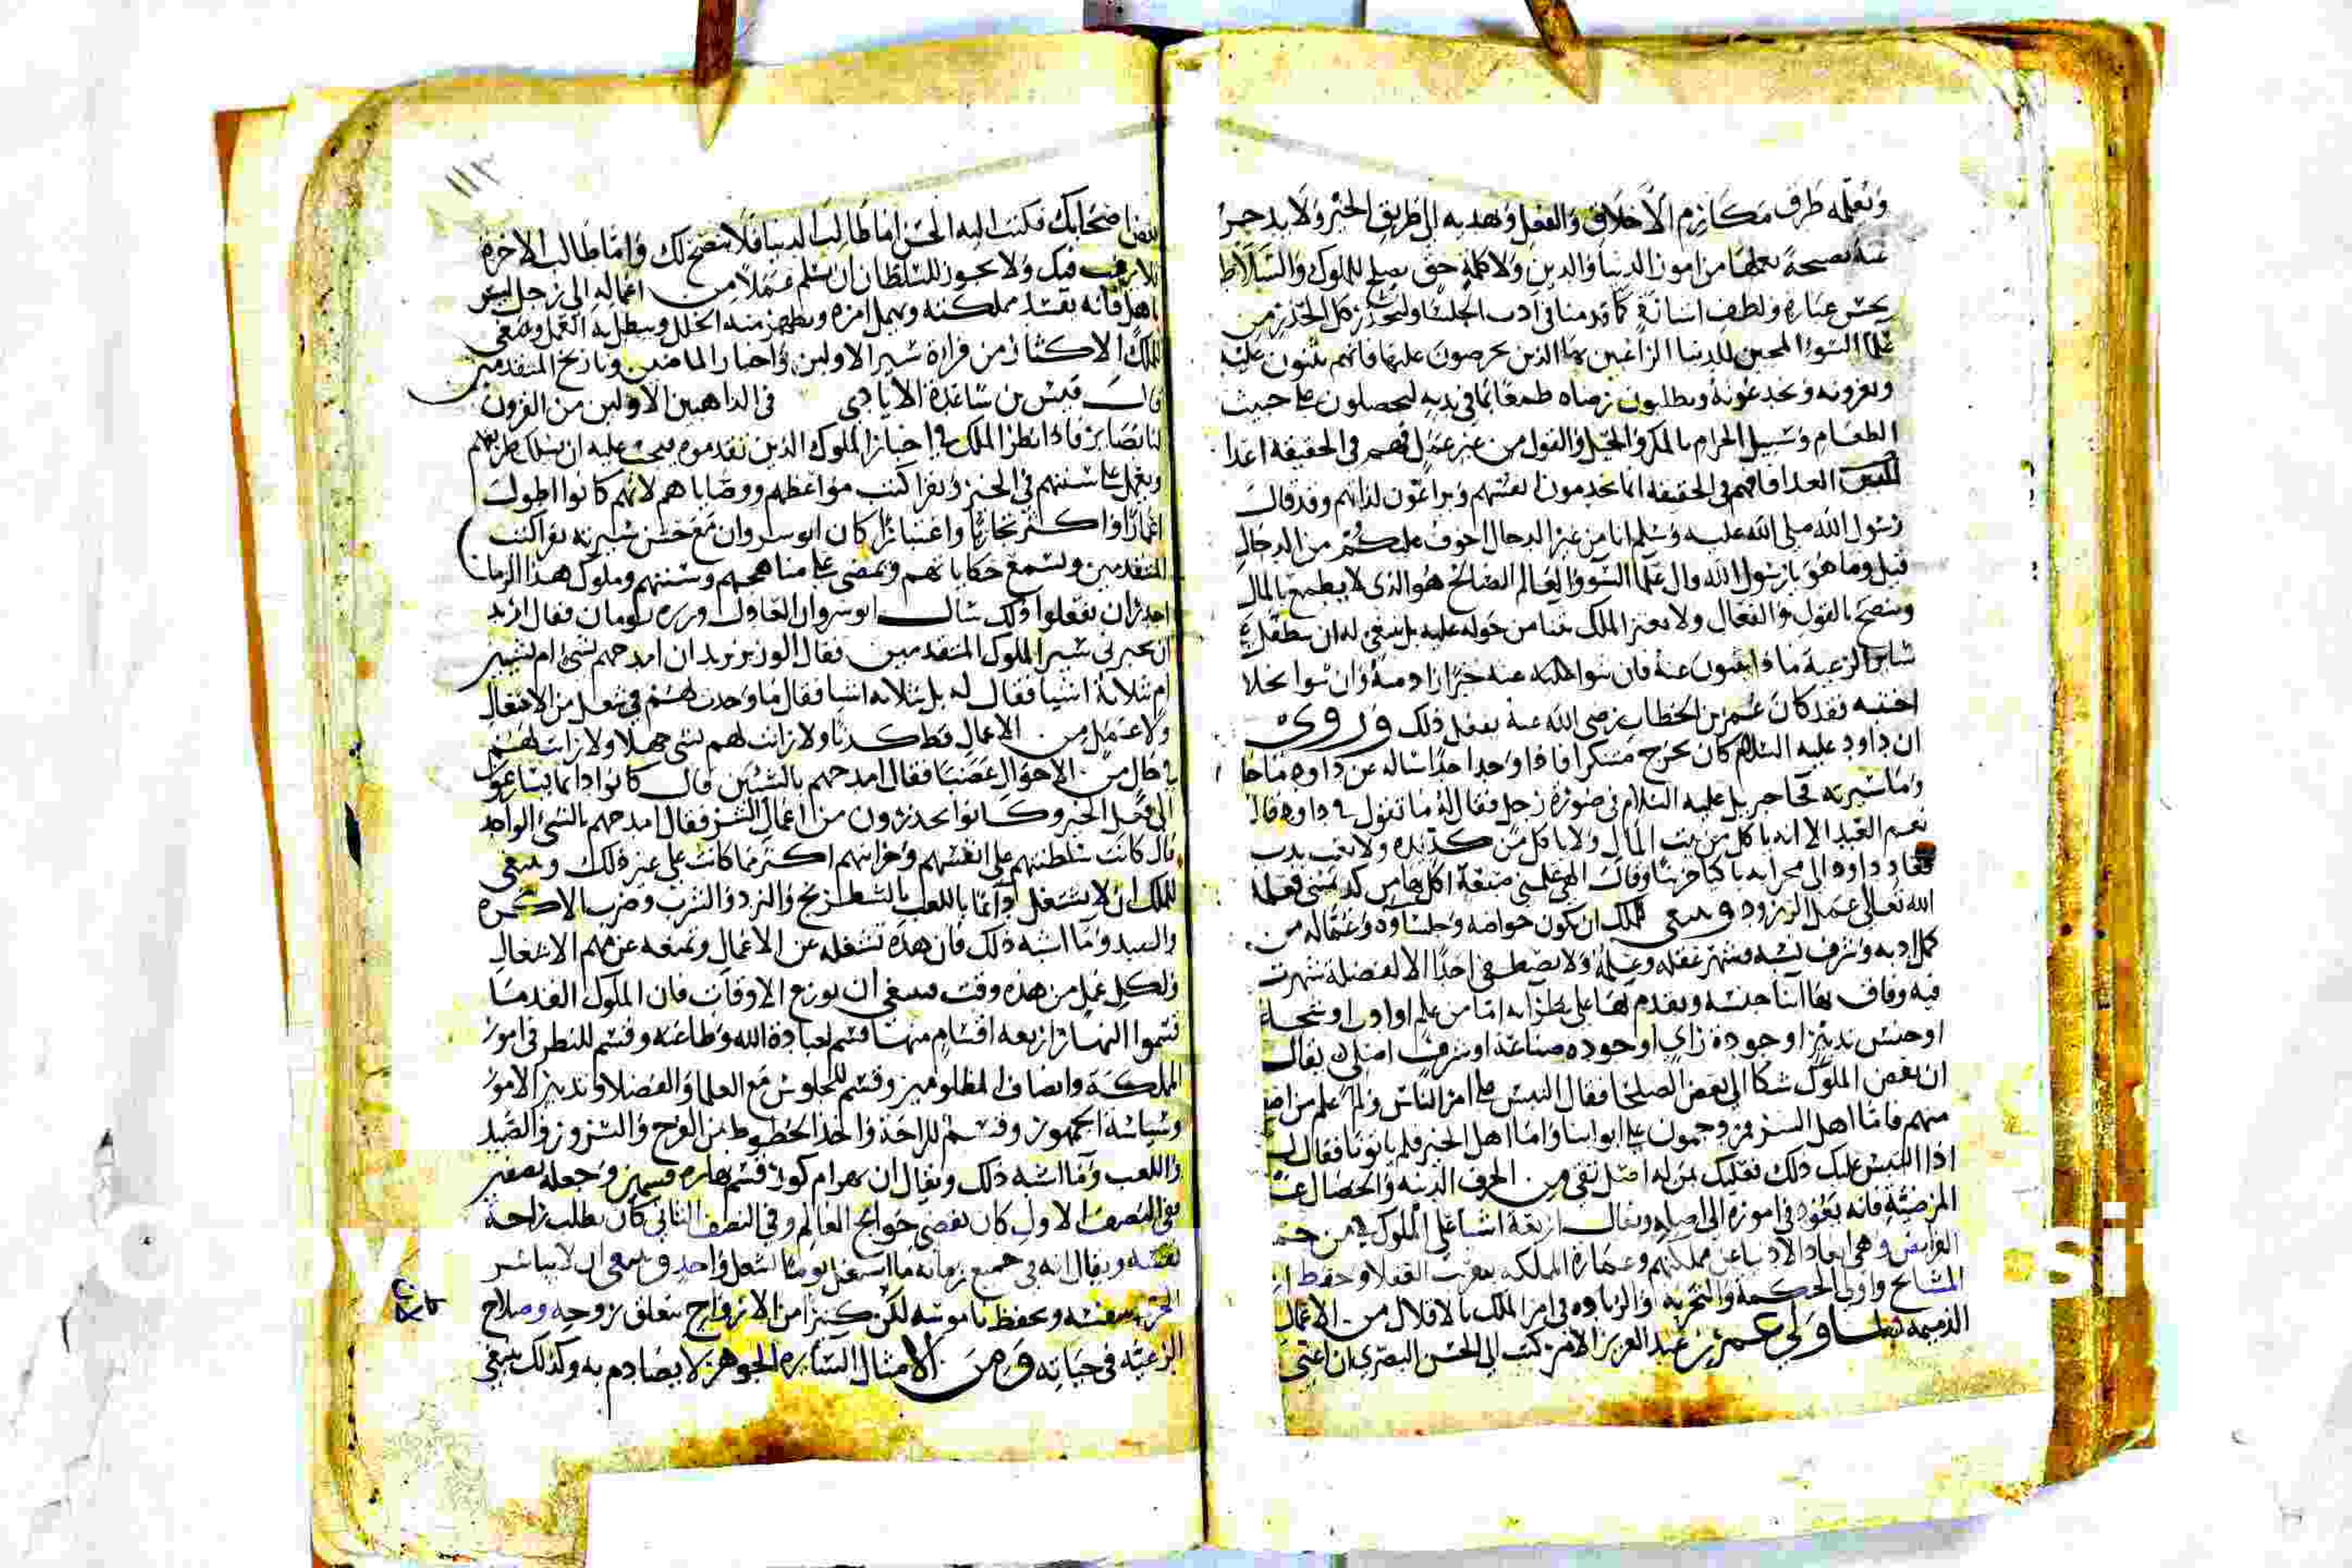 وتعلمه طرف مكارم الأخلاق والفضل وتهديه إلى طريق الخير ولا يدخر
عنه نصيحة يعلمها من امور الدنيا والدين ولا كلمة حق يصلح للملوك والسلاط
بحسن عبارة ولطف اشارة كما قدمنا في ادب الجلسا وليحذر كل الحذر من
علما السوء المحبين للدنيا الراغبين بها الذين يحرصون عليها فانهم يثنون عليه
ويغرونه ويخدعونه ويطلبون رضاه طمعا بما في يديه ليحصلون على خبيث
الطعام وسبيل الحرام بالمكر والحيل والقول من غير عمل فهم في الحقيقة اعدا
العدا فانهم في الحقيقة انما يخدمون انفسهم ويراعون لذاتهم وقد قال
رسول الله صلى الله عليه وسلم انا من غير الدجال اخوف عليكم من الدجال
قيل وما هو يا رسول الله قال علما السوء والعالم الصالح هو الذي لا يطمع بالمال
وينصح بالقول والفعال ولا يغتر الملك بثنا من حوله عليه بل ينبغي له ان
ساير الرعية ماذا يثنون عنه فان اثنوا عليه عنه خيرا زاد منه وان اثنوا بخلا
اجتنبه فقد كان عمر بن الخطاب رضي الله عنه يفعل ذلك وروى
ان داود عليه السلام كان يخرج متنكرا فاذا وجد احدا سأله عن داود ما حا
وما سيرته فجا جبريل عليه السلام في صورة رجل فقال له ما تقول في داود قال
نعم العبد الا انه ياكل من بيت المال ولا ياكل من كد يده ولا تعب بدن
فعاد داود الى محرابه باكيا حزينا وقال الهي علمني صنعة اكل بها من كد يميني فعلمه
الله تعالى عمل الزرود وينبغي للملك ان يكون خواصه وجلساؤه وعماله من
كمل ادبه وشرف نسبه واشتهر عقله وعلمه ولا يصطفي احدا الا لفضيلة شهرت
فيه وفاق بها ابنا جنسه وتقدم بها على نظرايه اما من علم او ادب او شجاعة
او حسن تدبير او جودة راي او جودة صناعة او شرف اصل يقال
ان بعض الملوك شكا الى بعض الصلحا فقال التبس علي امر الناس ولم اعلم من اصط
منهم فاما اهل الشر فيزدحمون على ابوابنا واما اهل الخير فلم ياتونا فقال
اذا التبس عليك ذلك فعليك بمن له اصل نقي من الحرف الدنية والخصال غير
المرضية فانه يعود في اموره الى اصله ويقال اربعة اشيا على الملوك من حتم
الفرايض وهي ابعاد الادنيا عن مملكتهم وعمارة المملكة بقرب العقلا وحفظ
المشايخ واولى الحكمة والتجربة والزيادة في امر الملك بالاقلال من الاعمال
الذميمة ولما ولي عمر بن عبد العزيز الامر كتب الى الحسن البصري ان اعني
باصحابك فكتب اليه الحسن اما طالب الدنيا فلا ينصح لك واما طالب الاخرة
فلا يرغب فيك ولا يجوز للسلطان ان يسلم عملا من اعماله الى رجل ليس
اهل فانه يفسد مملكته ويهمل امره ويظهر منه الخلل ويبطل به العمل وينبغي
للملك الاكثار من قراة سير الاولين واخبار الماضين وتاريخ المتقدمين
قال قيس بن ساعدة الايادي في الذاهبين الاولين من القرون
لنا بصاير فاذا نظر الملك في اخبار الملوك الذين تقدموه يجب عليه ان يسلك طريقهم
ويعمل على سننهم في الخير ويقرا كتب مواعظهم ووصاياهم لانهم كانوا اطول
اعمارا واكثر تجاربا واعتبارا كان انوسروان مع حسن سيرته يقرا كتب
المتقدمين ويسمع حكاياتهم ويمضي على مناهجهم وسننهم وملوك هذا الزمان
اجدر ان يفعلوا ذلك سال انوسروان العادل وزيره يومان فقال اريد
ان تخبرني سير الملوك المتقدمين فقال الوزير تريد ان امدحهم بشي ام بشيين
ام بثلاثة اشيا فقال له بل بثلاثة اشيا فقال ما وجدت لهم في شغل من الاشغال
ولا عمل من الاعمال قط كذبا ولا رايت لهم بشي جهلا ولا رايت لهم
في حال من الاحوال غضبا فقال امدحهم بالشيئين قال كانوا دايما يسارعون
الى فعل الخير وكانوا يحذرون من اعمال الشر فقال امدحهم بالشي الواحد
قال كانت سلطنتهم على انفسهم وخزانتهم اكثر مما كانت على غير ذلك وينبغي
للملك ان لا يشتغل دايما باللعب بالشطرنج والنرد والشرب وضرب الاكرة
والصيد وما اشبه ذلك فان هذه تشغله عن الاعمال وتمنعه عن مهم الاشغال
ولكل عمل من هذه وقت فينبغي ان يوزع الاوقات فان الملوك القدما
قسموا النهار اربعة اقسام منها قسم لعبادة الله وطاعته وقسم للنظر في امور
المملكة وانصاف المظلومين وقسم للجلوس مع العلما والفضلا وتدبير الامور
وسياسة الجمهور وقسم للراحة واخذ الحظوظ من الفرح والسرور والصيد
واللعب وما اشبه ذلك ويقال ان بهرام كور قسم نهاره قسمين وجعله نصفين
ففي النصف الاول كان يقضي حوايج العالم وفي النصف الثاني كان يطلب راحة
نفسه ويقال انه في جميع زمانه ما اشتغل يوما بشغل واحد وينبغي ان لا يباشر
بنفسه ويحفظ ناموسه لكن كثيرا من الارواح متعلق بروحه وصلاح
الرعية في حياته ومن الامثال السايرة الجوهر لا يصادم به وكذلك ينبغي